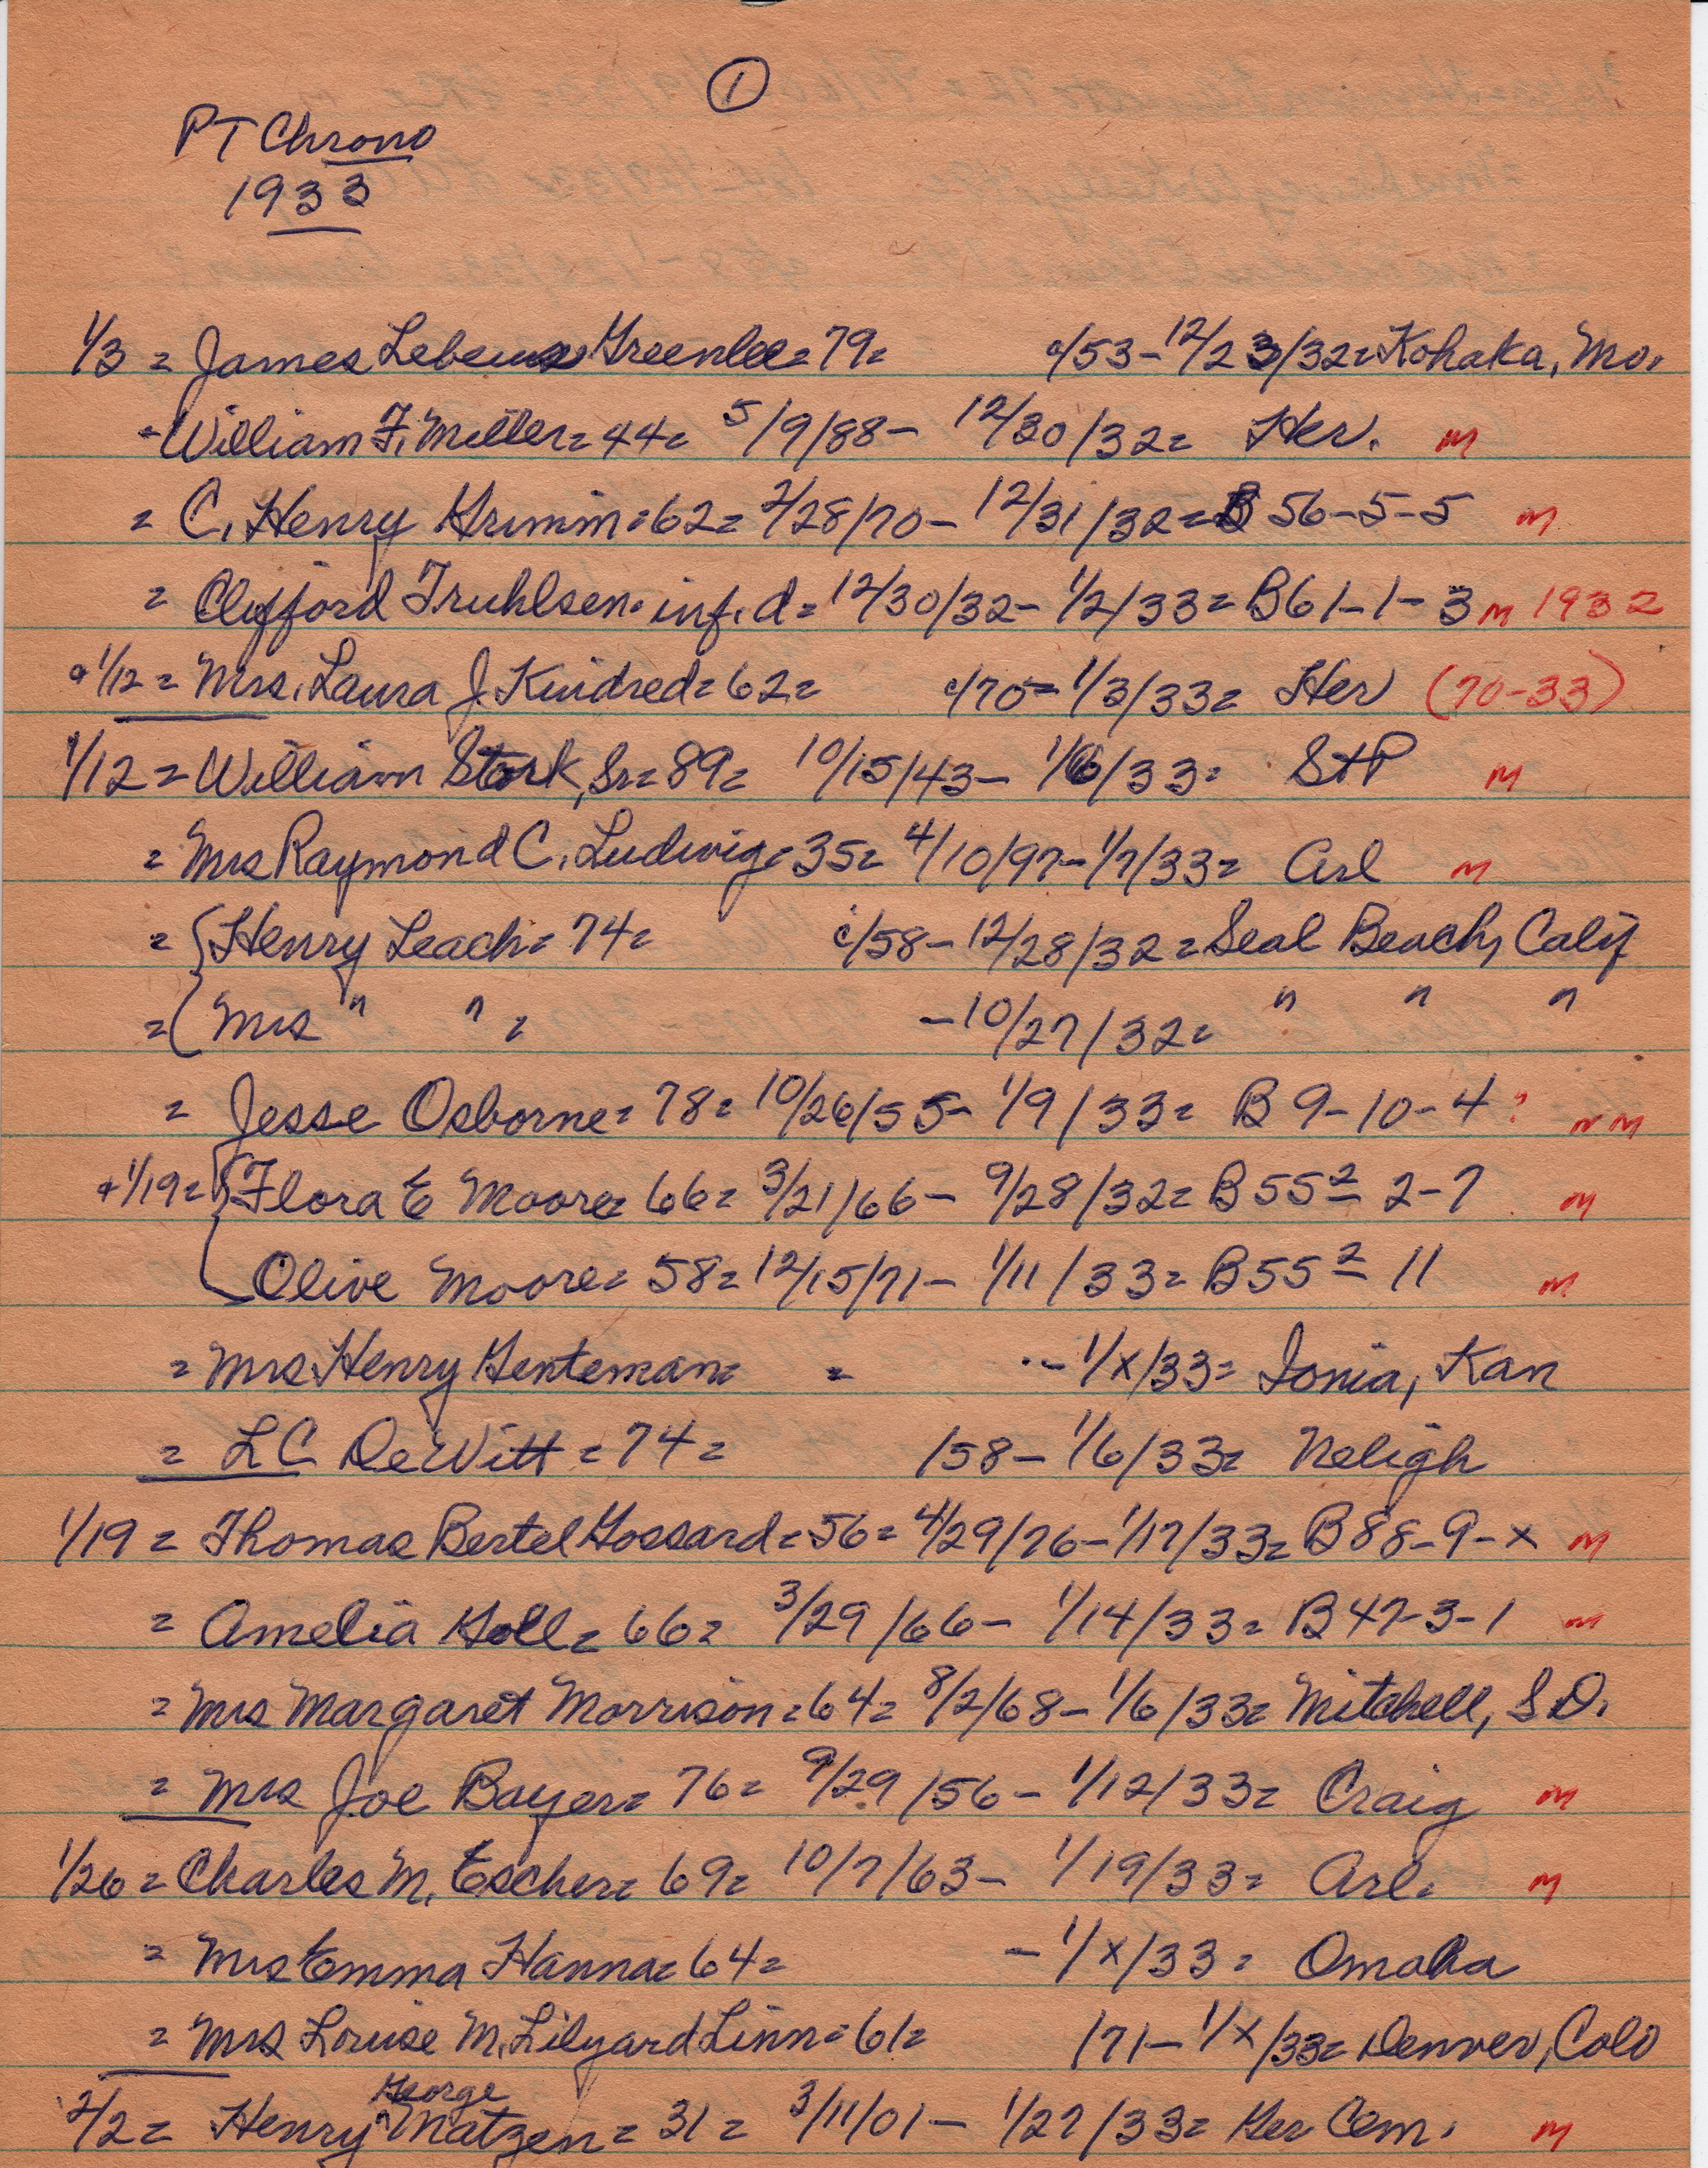 1
PT Chrono
1933
1/3 = James Lebeus Greenlee = 79 = c/53 - 12/23/32 = Kohaka, Mo.
= William F. Miller = 44 = 5/9/88 - 12/30/32 = Her. m
= C. Henry Grimm = 62 = 2/28/70 - 12/31/32 = B 56-5-5 m
= Clifford Truhlsen = inf. d = 12/30/32 - 1/2/33 = B61-1-3 m 1932
1/12 = Mrs. Laura J. Kindred = 62 = c/70 = 1/3/33 = Her (70-33)
1/12 = William Stork, Sr = 89 = 10/15/43 - 1/6/33 = StP m
= Mrs Raymond C. Ludwig = 35 = 4/10/97 - 1/7/33 = Arl m
= { Henry Leach = 74 = c/58 - 12/28/32 = Seal Beach, Calif
= { Mrs " " = - 10/27/32 = " " "
= Jesse Osborne = 78 = 10/26/55 - 1/9/33 = B 9-10-4 ? n m
+ 1/19 = { Flora E Moore = 66 = 3/21/66 - 9/28/32 = B 55 2 2-7 m
Olive Moore = 58 = 12/15/71 - 1/11/33 = B 55 2 11 m
= Mrs Henry Genteman = = - 1/x/33 = Ionia, Kan
= LC DeWitt = 74 = /58 - 1/6/33 = Neligh
1/19 = Thomas Bertel Gossard = 56 = 4/29/76 - 1/17/33 = B88-9-x m
= Amelia Goll = 66 = 3/29/66 - 1/14/33 = B 47-3-1 m
= Mrs Margaret Morrison = 64 = 8/2/68 - 1/6/33 = Mitchell, S.D.
= Mrs Joe Bayer = 76 = 9/29/56 - 1/12/33 = Craig m
1/26 = Charles M. Escher = 69 = 10/7/63 - 1/19/33 = Arl. m
= Mrs Emma Hanna = 64 = - 1/x/33 = Omaha
= Mrs Louise M. Lilyard Linn = 61 = /71 - 1/x/33 = Denver, Colo
George
2/2 = Henry ^ Matzen = 31 = 3/11/01 - 1/27/33 = Ger Cem. m